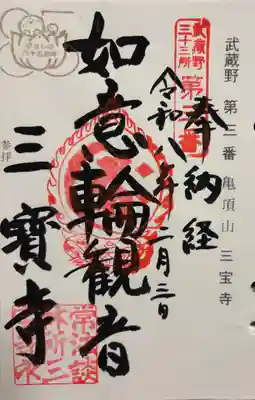 武蔵野 第三番 亀頂山 三宝寺
武蔵野
三十三所
第三番
奉納経
令和八年二月三日
如意輪観音
三寳寺
参拝